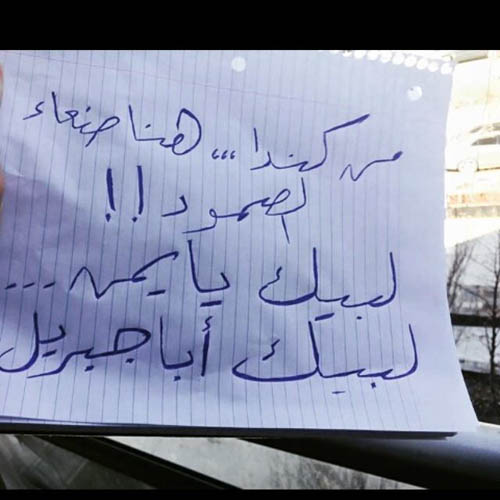 من كندا ,,, هنا صنعاء
الصمود !!
لبيك يا يمن ...
لبيك أبا جبريل